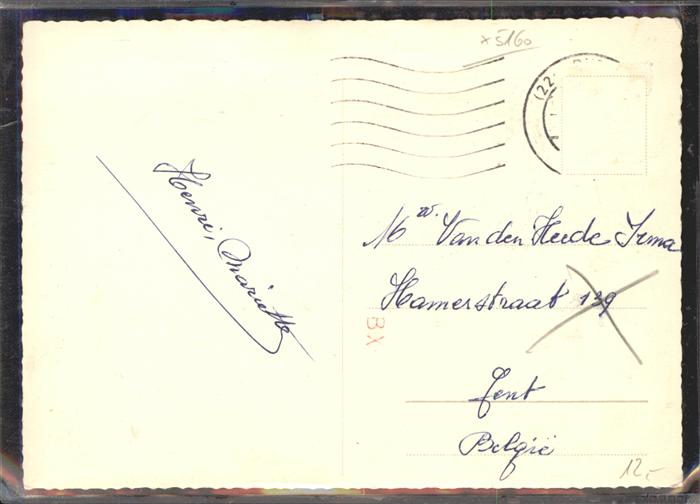 x5160
(22
Henri, Mariette
16 w. Van den Heede Irma
Hamerstraat 139
BX
Gent
België
12,-